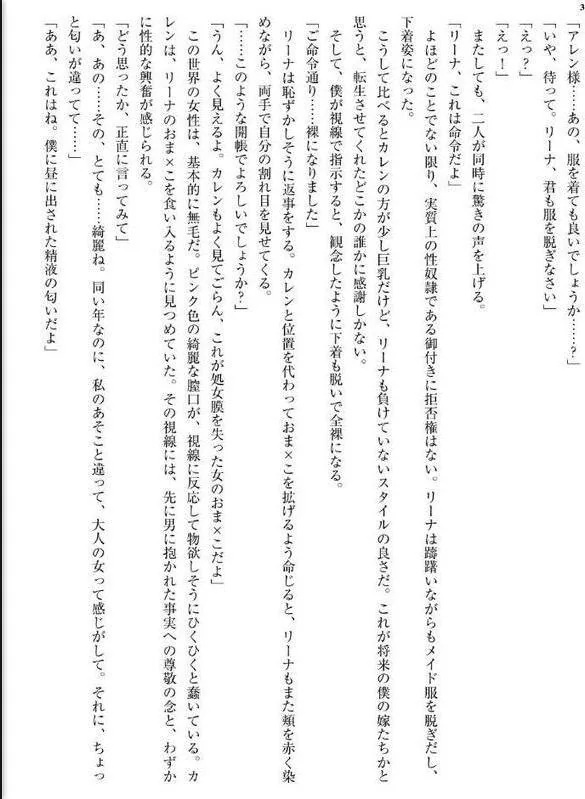 3
「アレン様……あの、服を着ても良いでしょうか……?」
「いや、待って。リーナ、君も服を脱ぎなさい」
「えっ?」
「えっ!」
またしても、二人が同時に驚きの声を上げる。
「リーナ、これは命令だよ」
よほどのことでない限り、実質上の性奴隷である御付きに拒否権はない。リーナは躊躇いながらもメイド服を脱ぎだし、
下着姿になった。
こうして比べるとカレンの方が少し巨乳だけど、リーナも負けていないスタイルの良さだ。これが将来の僕の嫁たちかと
思うと、転生させてくれたどこかの誰かに感謝しかない。
そして、僕が視線で指示すると、観念したように下着も脱いで全裸になる。
「ご命令通り……裸になりました」
リーナは恥ずかしそうに返事をする。カレンと位置を代わっておま×こを拡げるよう命じると、リーナもまた頬を赤く染
めながら、両手で自分の割れ目を見せてくる。
「……このような開帳でよろしいでしょうか?」
「うん、よく見えるよ。カレンもよく見てごらん、これが処女膜を失った女のおま×こだよ」
この世界の女性は、基本的に無毛だ。ピンク色の綺麗な膣口が、視線に反応して物欲しそうにひくひくと蠢いている。カ
レンは、リーナのおま×こを食い入るように見つめていた。その視線には、先に男に抱かれた事実への尊敬の念と、わずか
に性的な興奮が感じられる。
「どう思ったか、正直に言ってみて」
「あ、あの……その、とても……綺麗ね。同い年なのに、私のあそこと違って、大人の女って感じがして。それに、ちょっ
と匂いが違ってて……」
「ああ、これはね。僕に昼に出された精液の匂いだよ」